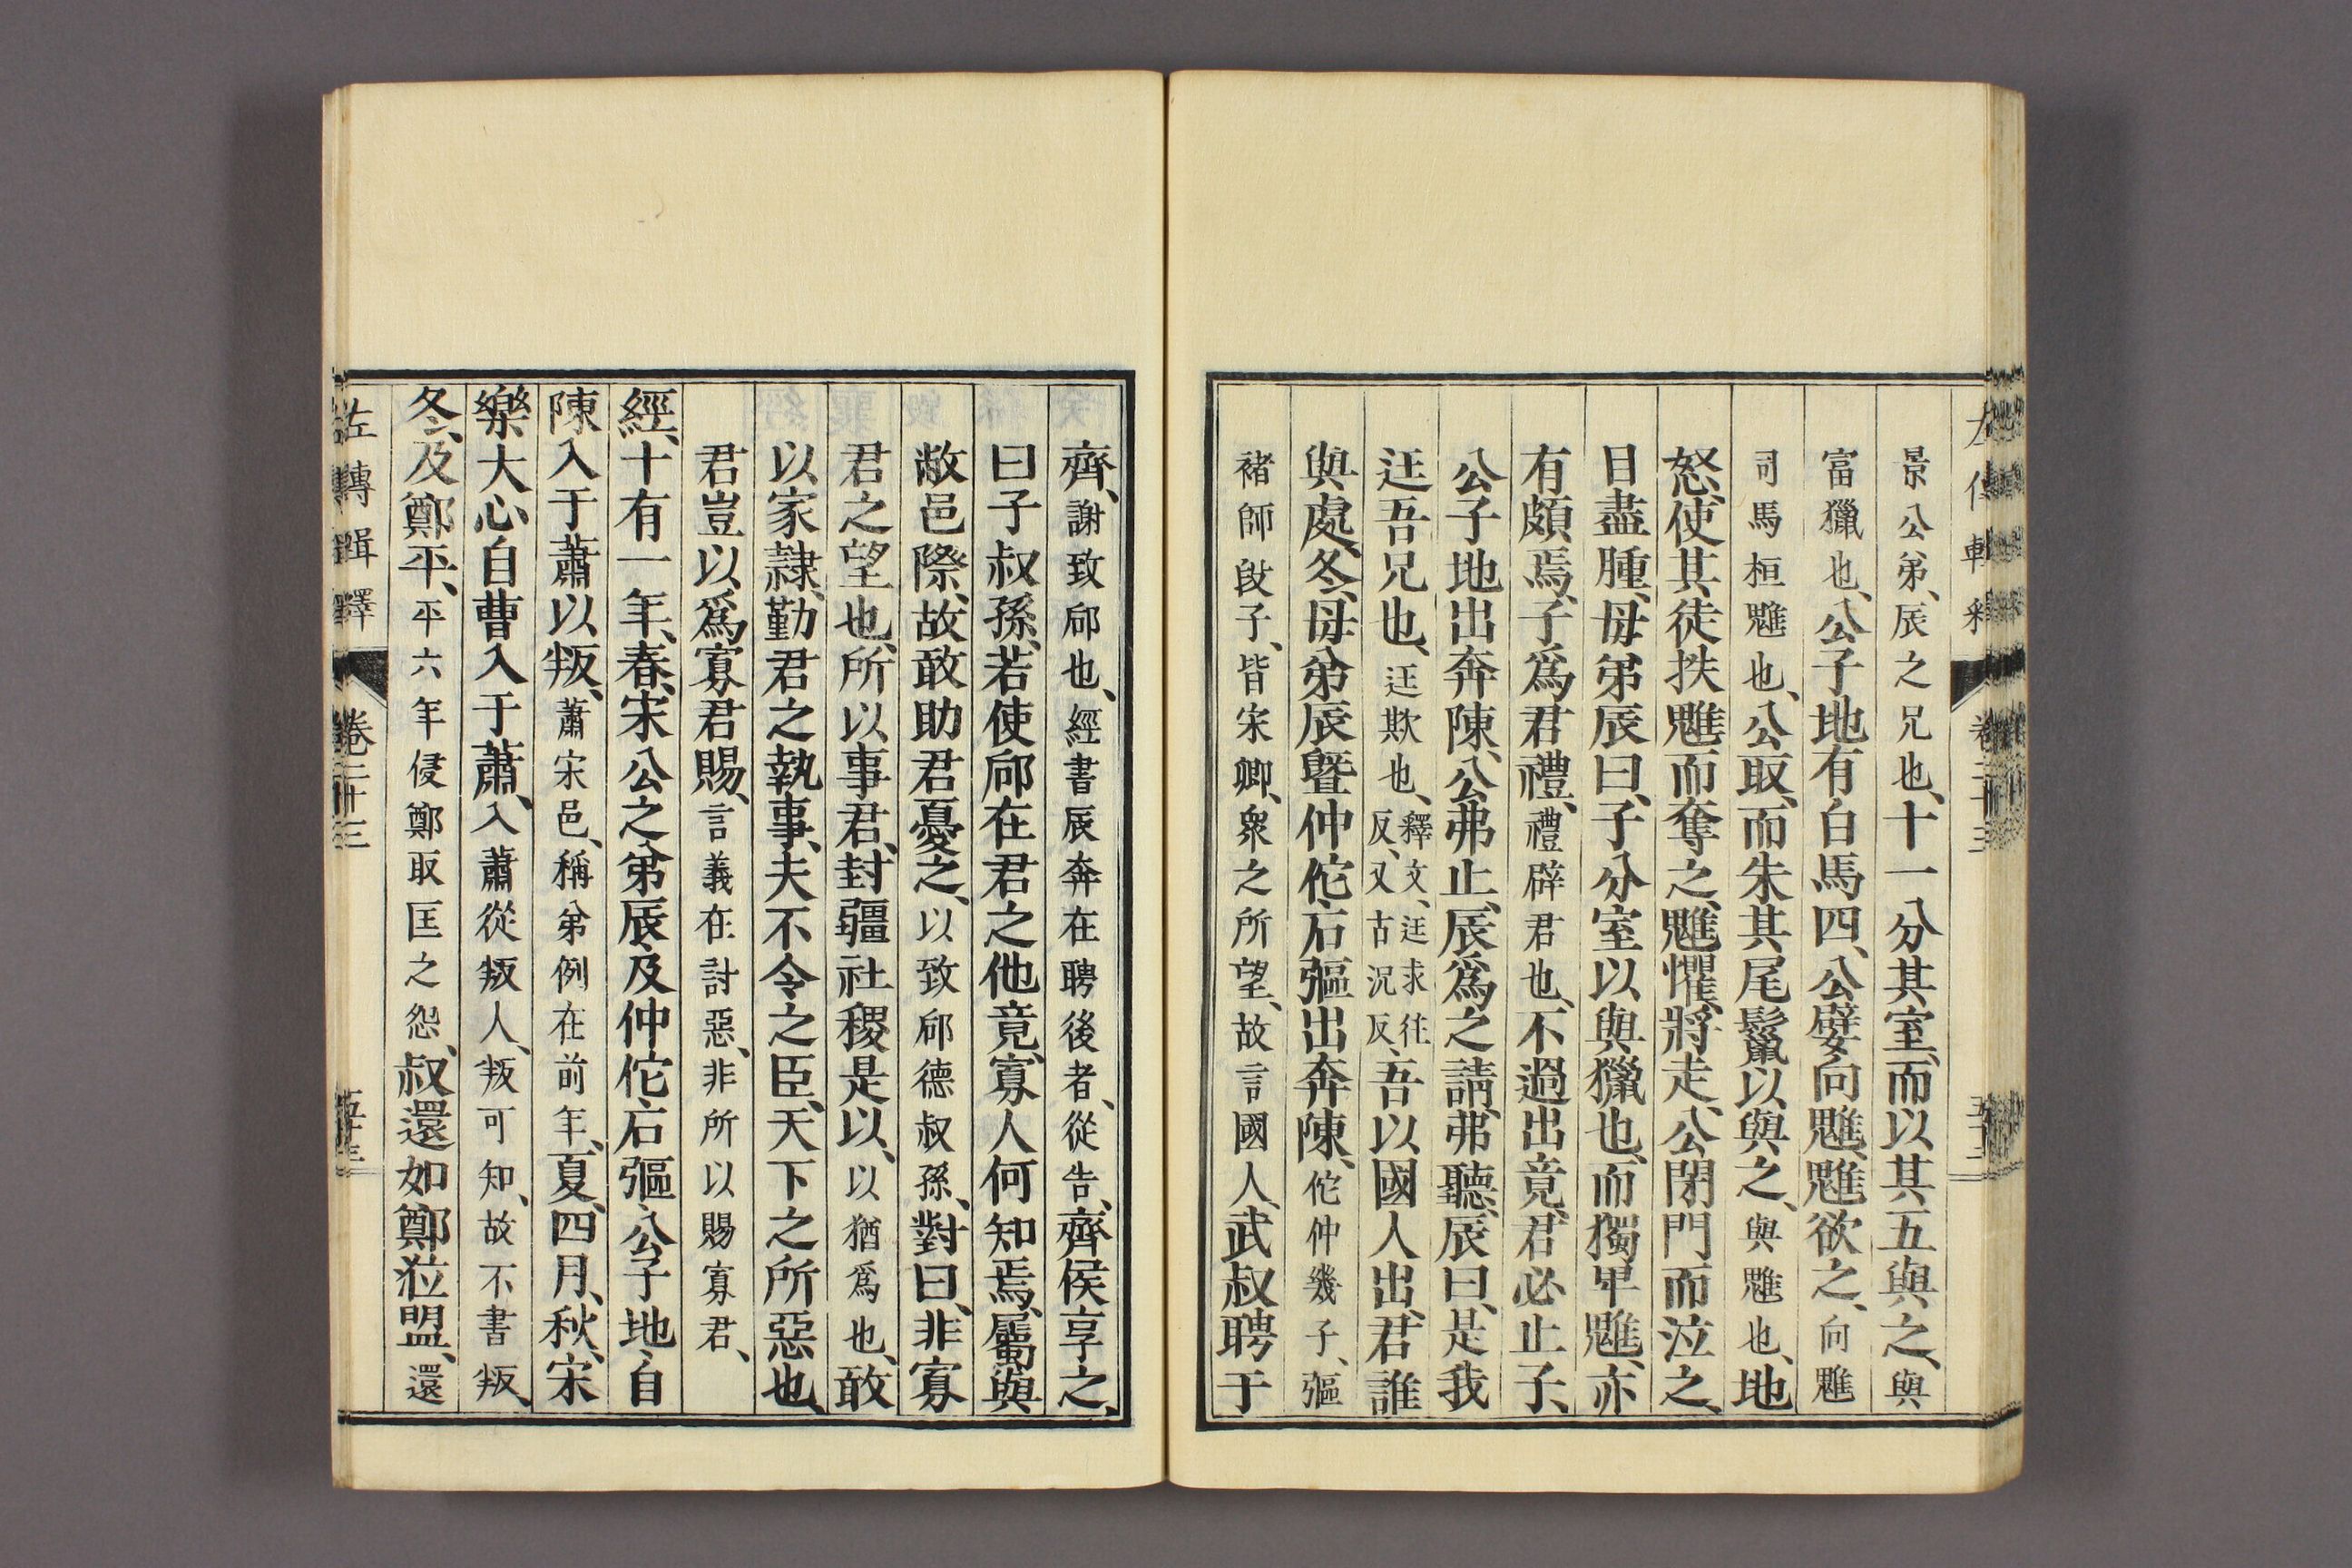 景公弟、辰之兄也、十一分其室、而以其五與之、與
富獵也、公子地有白馬四、公嬖向魋、魋欲之、向魋
司馬桓魋也、公取、而朱其尾鬣以與之、與魋也、地
怒、使其徒抶魋而奪之、魋懼、將走、公閉門而泣之、
目盡腫、母弟辰曰、子分室以與獵也、而獨卑魋、亦
有頗焉、子爲君禮、禮辟君也、不過出竟、君必止子、
公子地出奔陳、公弗止、辰爲之請、弗聽、辰曰、是我
迋吾兄也、迋欺也、釋文、迋求往反、又古況反、吾以國人出、君誰
與處、冬、母弟辰曁仲佗、石彄出奔陳、佗仲幾子、彄
褚師段子、皆宋卿、衆之所望、故言國人、武叔聘于
齊、謝致郈也、經書辰奔在聘後者、從告、齊侯享之、
曰子叔孫、若使郈在君之他竟、寡人何知焉、屬與
敝邑際、故敢助君憂之、以致郈德叔孫、對曰、非寡
君之望也、所以事君、封疆社稷是以、以猶爲也、敢
以家隷、勤君之執事、夫不令之臣、天下之所惡也、
君豈以爲寡君賜、言義在討惡、非所以賜寡君、
經、十有一年、春、宋公之弟辰、及仲佗、石彄、公子地、自
陳入于蕭以叛、蕭宋邑、稱弟例在前年、夏、四月、秋、宋
樂大心、自曹入于蕭、入蕭從叛人、叛可知、故不書叛、
冬、及鄭平、平六年侵鄭取匡之怨、叔還如鄭涖盟、還
左傳輯釋 卷二十三